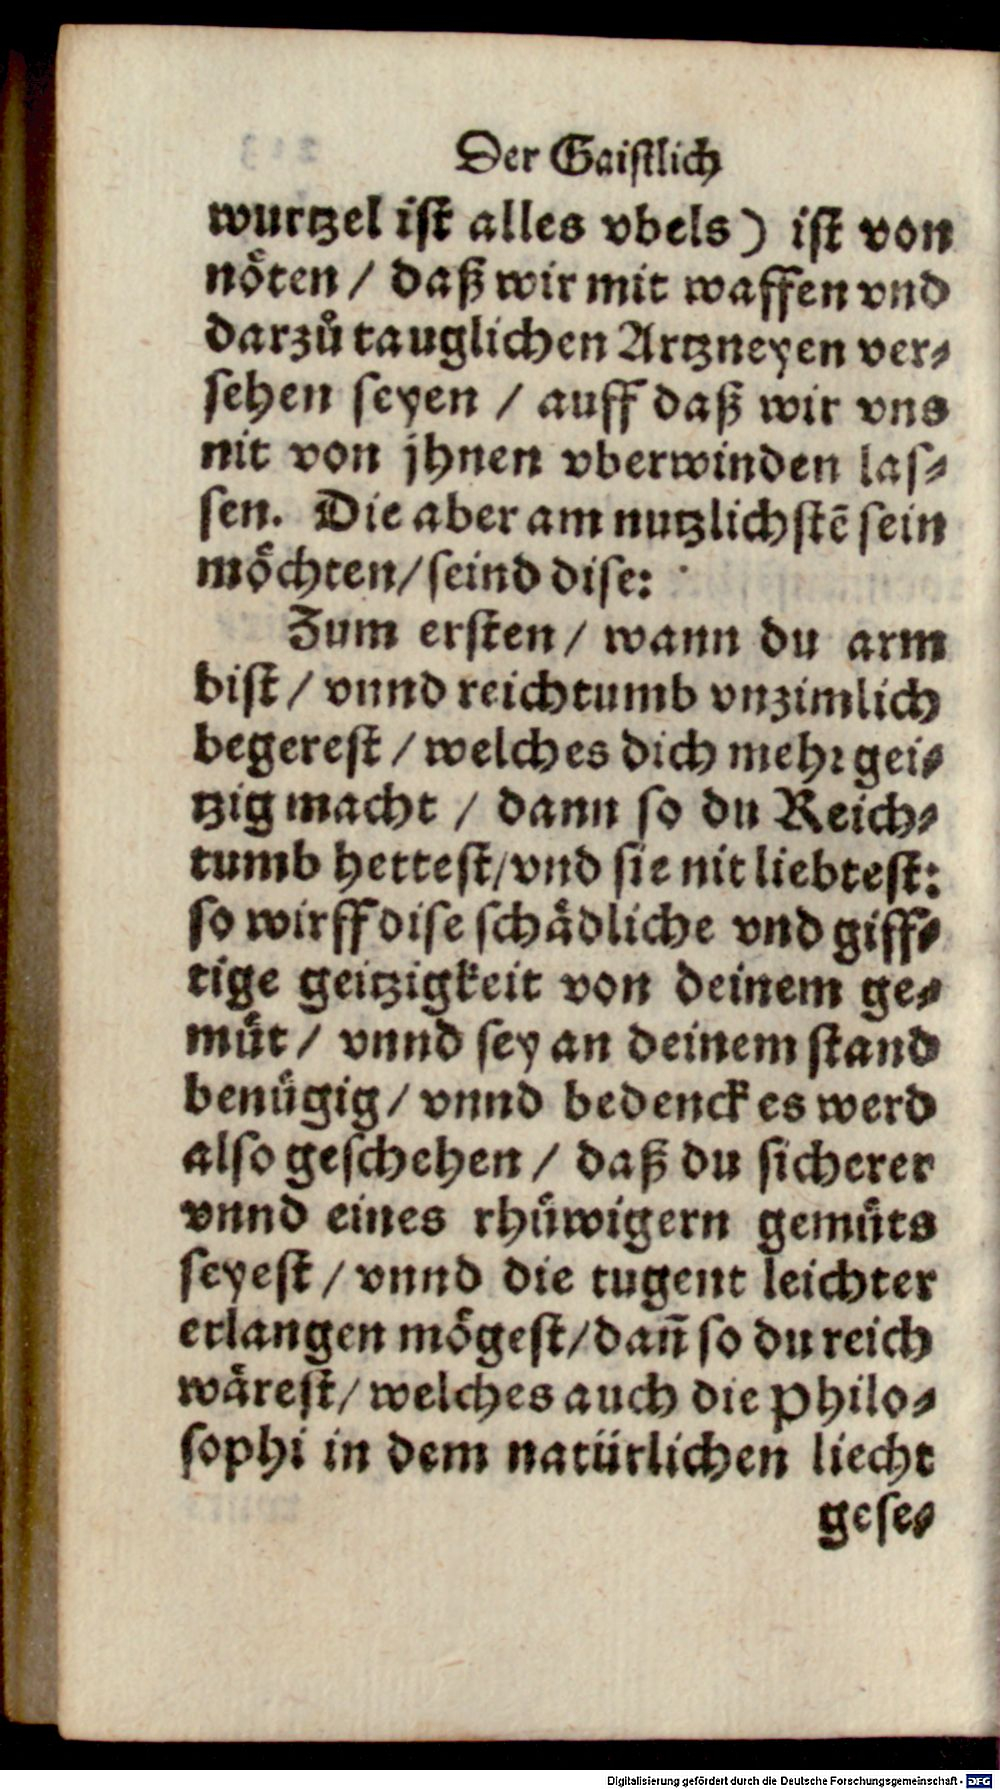 Der Gaistlich
wurtzel ist alles vbels) ist von
nöten / daß wir mit waffen vnd
darzů tauglichen Artzneyen ver-
sehen seyen / auff daß wir vns
nit von jhnen vberwinden las-
sen. Die aber am nutzlichstē sein
möchten/ seind dise:
Zum ersten / wann du arm
bist / vnnd reichtumb vnzimlich
begerest / welches dich mehr gei-
tzig macht / dann so du Reich-
tumb hettest/ vnd sie nit liebtest:
so wirff dise schädliche vnd giff-
tige geitzigkeit von deinem ge-
müt / vnnd sey an deinem stand
benügig / vnnd bedenck es werd
also geschehen / daß du sicherer
vnnd eines rhüwigern gemüts
seyest / vnnd die tugent leichter
erlangen mögest/ dañ so du reich
wärest/ welches auch die philo-
sophi in dem natürlichen liecht
gese-
Digitalisierung gefördert durch die Deutsche Forschungsgemeinschaft - DFG